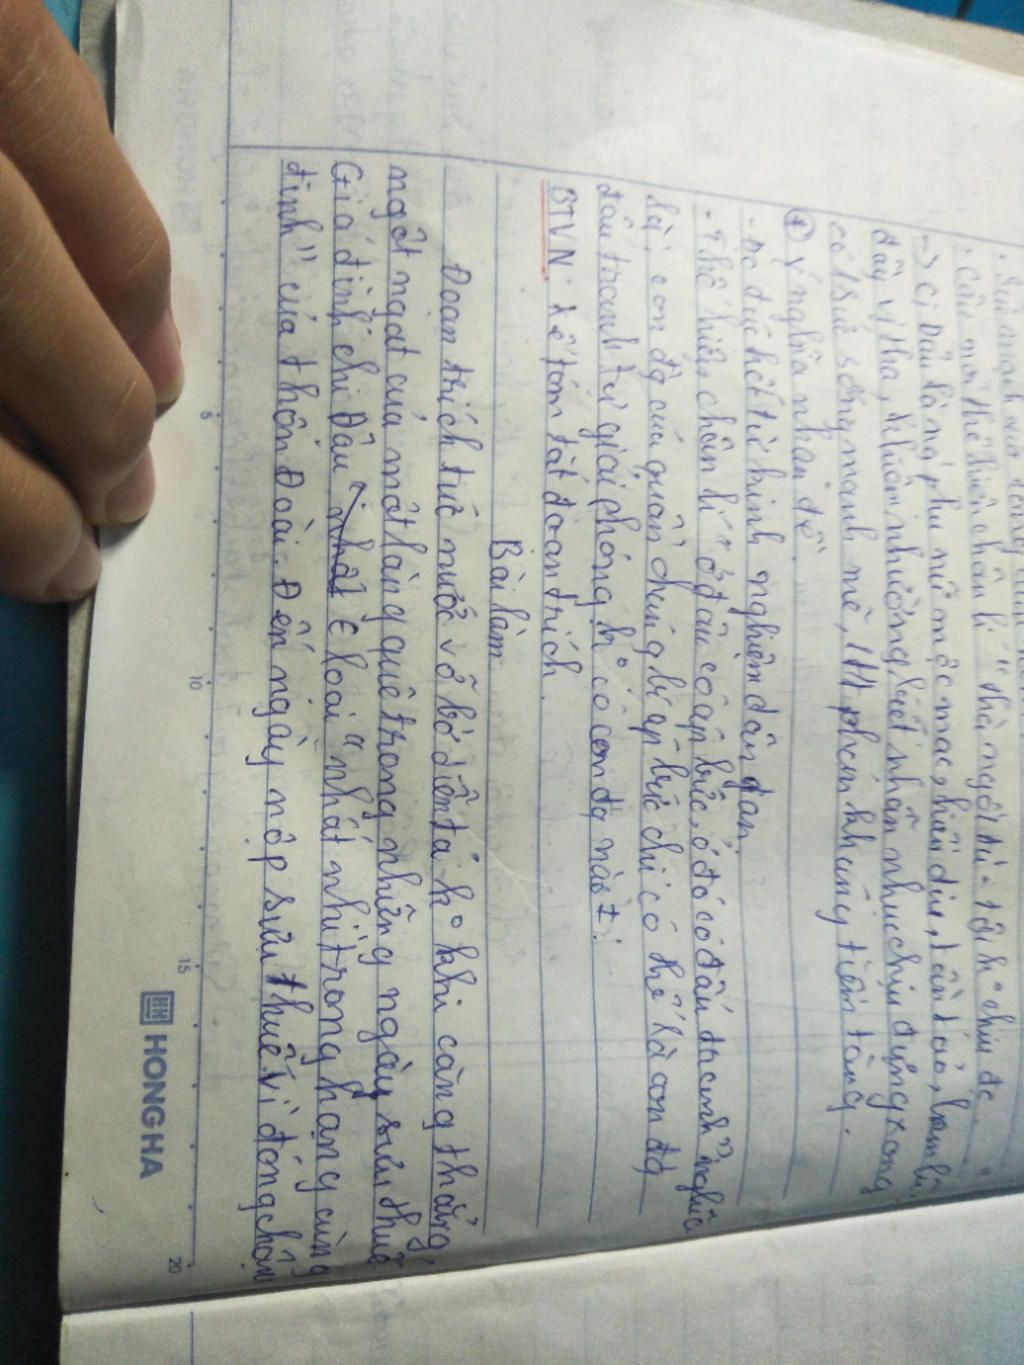 · Câu nói thể hiện chân lí "thà ngồi tù - tôi k° chịu đc"
-> Cị Dậu là ng phụ nữ mộc mạc, hiền dịu, tần tảo,
đầy vị tha, khiêm nhường, biết nhẫn nhục chịu đựng xong
có 1 sức sống mạnh mẽ, 1 tt phản kháng tiềm tàng.
* Ý nghĩa nhan đề.
- Đc đúc kết từ kinh nghiệm dân gian.
- Thể hiện chân lí "ở đâu có áp bức, ở đó có đấu tranh" nghĩa
là: con đg của quần chúng bị áp bức chỉ có thể là con đg
đấu tranh tự giải phóng k° có con đg nào ≠.
BTVN: kể tóm tắt đoạn trích.
Bài làm
Đoạn trích tức nước vỡ bờ diễn tả k° khí căng thẳng
ngột ngạt của một làng quê trong những ngày sưu thuế
Gia đình chị Dậu nhất € loại "nhất nhì trong hạng cùng
đinh" của thôn Đoài. Đến ngày nộp sưu thuế vì đóng chậm
HONG HA
5
10
15
20